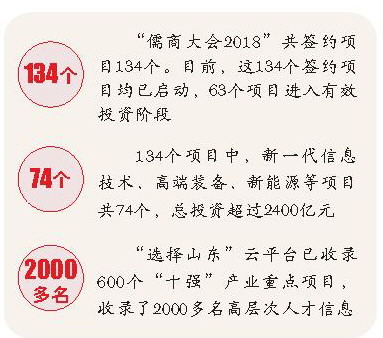 134个
“儒商大会2018”共签约项
目134个。目前，这134个签约项
目均已启动，63个项目进入有效
投资阶段
74个
134个项目中，新一代信息
技术、高端装备、新能源等项目
共74个，总投资超过2400亿元
2000
多名
“选择山东”云平台已收录
600个“十强”产业重点项目，
收录了2000多名高层次人才信息